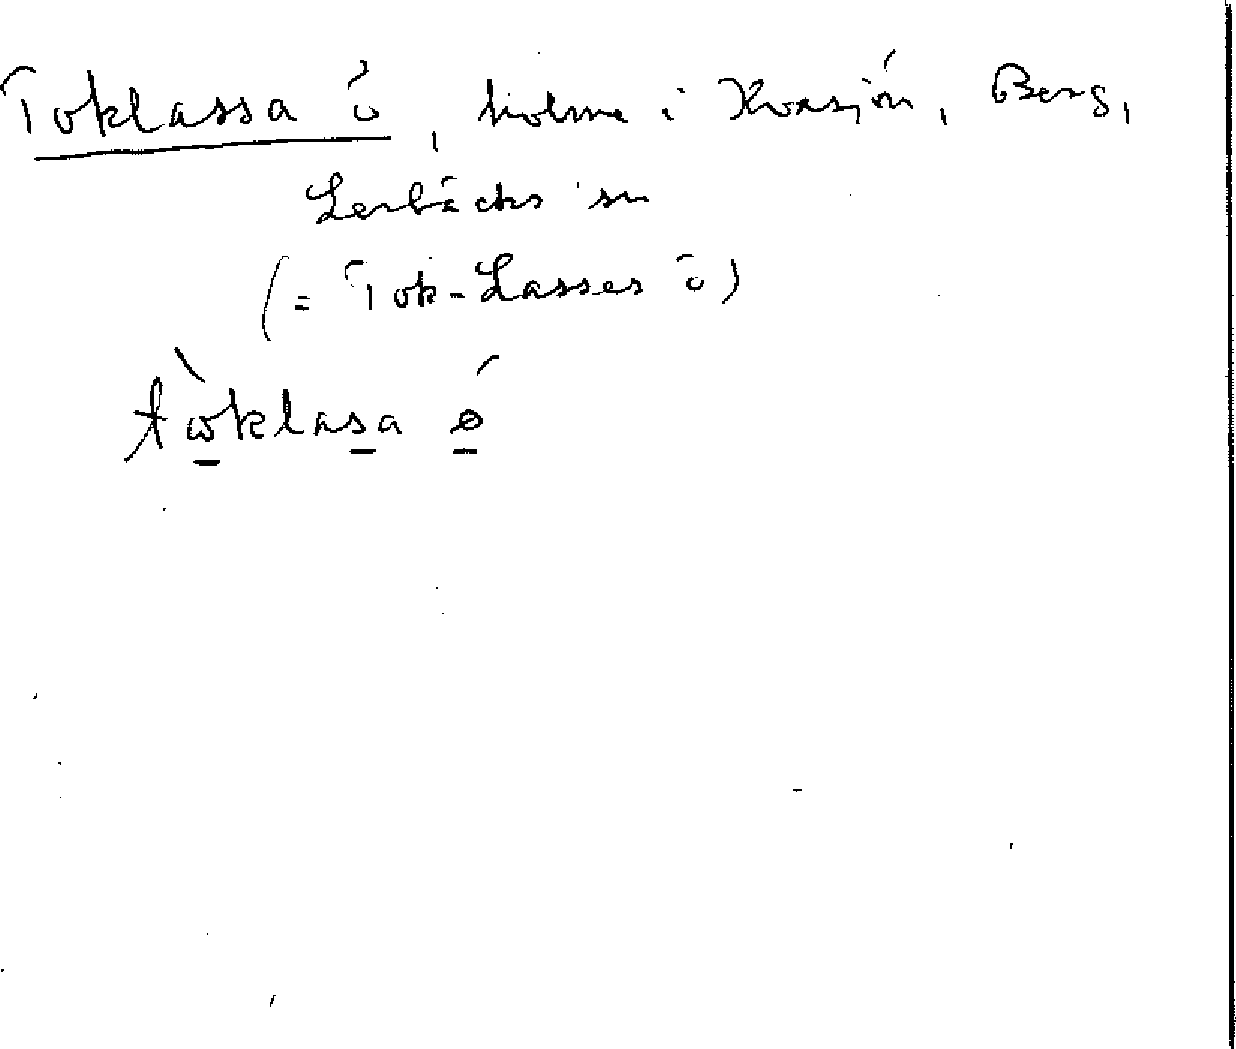 Toklassa ö, holme i Kvasjön, Berg,
Lerbäcks sn
(= Tok-Lasses ö)
tòklasa ǿ